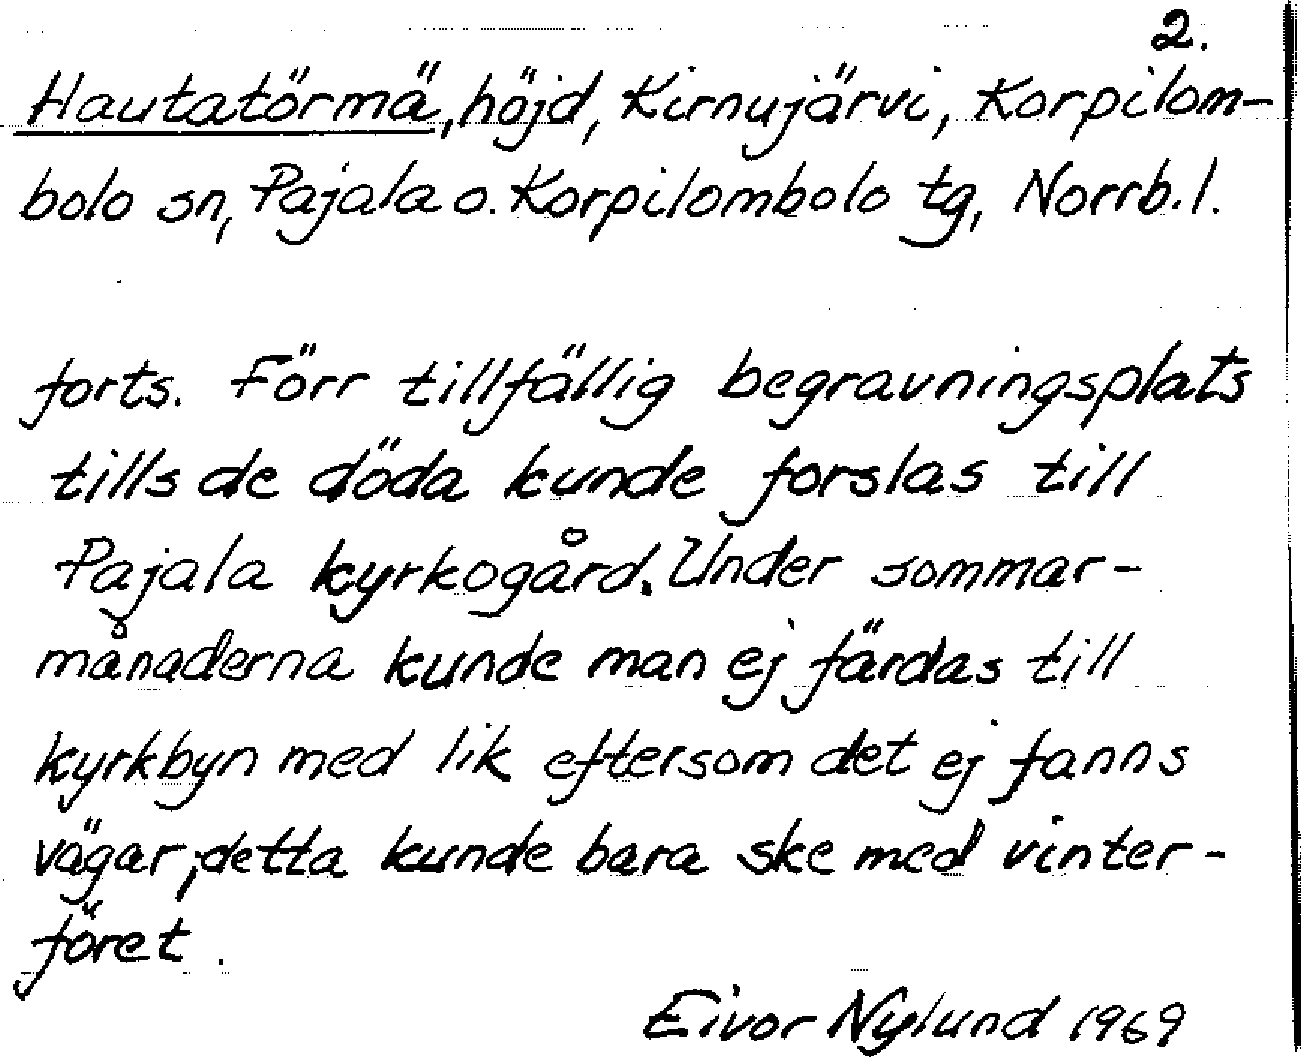 2.
Hautatörmä, höjd, Kirnujärvi, Korpilom-
bolo sn, Pajala o. Korpilombolo tg, Norrb. l.
forts. Förr tillfällig begravningsplats
tills de döda kunde forslas till
Pajala kyrkogård. Under sommar-
månaderna kunde man ej färdas till
kyrkbyn med lik eftersom det ej fanns
vägar, detta kunde bara ske med vinter-
föret.
Eivor Nylund 1969